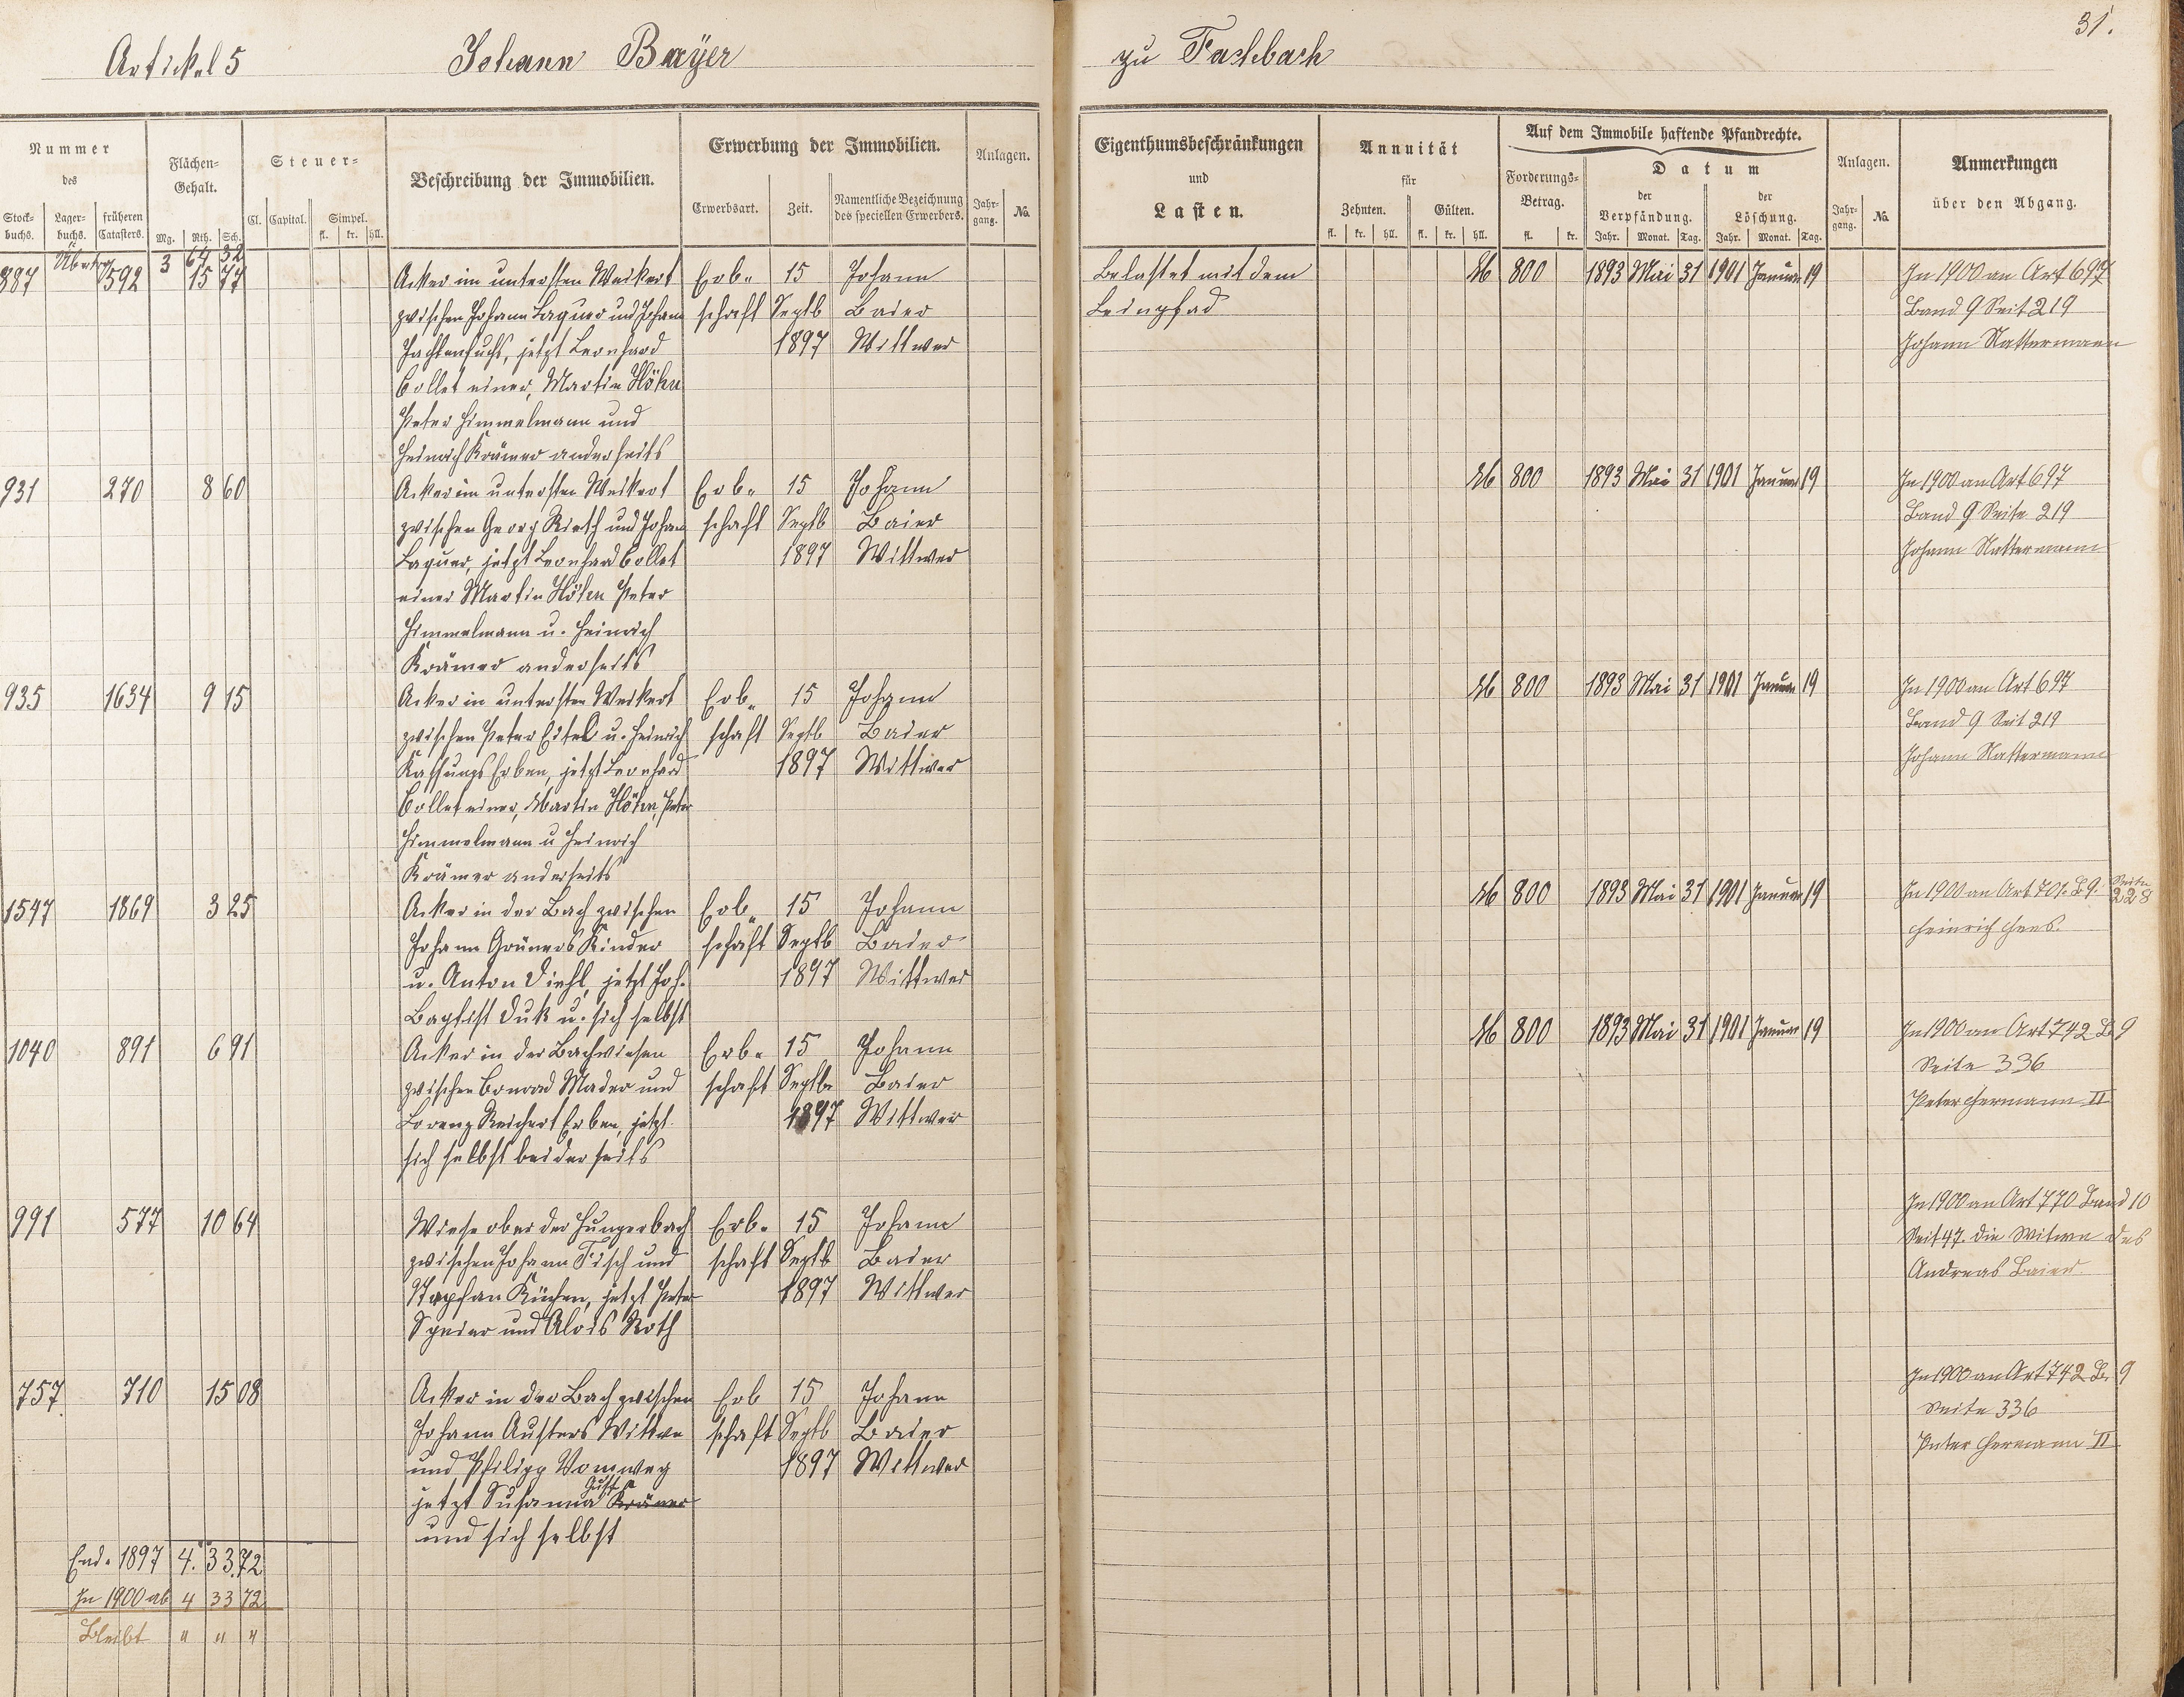 Artikel 5 Johann Baÿer
zu Fachbach
31.
Nummer
des
Stock-
buchs.
Lager-
buchs.
früheren
Catasters.
Flächen-
Gehalt.
Mg. Rth. Sch.
Steuer-
Cl. Capital. Simpel.
fl. kr. hll.
Beschreibung der Immobilien.
Erwerbung der Immobilien.
Erwerbsart. Zeit. Namentliche Bezeichnung
des speciellen Erwerbers.
Anlagen.
Jahr-
gang. No.
Eigenthumsbeschränkungen
und
Lasten.
Annuität
für
Zehnten. Gülten.
fl. kr. hll. fl. kr. hll.
Auf dem Immobile haftende Pfandrechte.
Forderungs-
Betrag.
fl. kr.
Datum
der
Verpfändung.
Jahr. Monat. Tag.
der
Löschung.
Jahr. Monat. Tag.
Anlagen.
Jahr-
gang. No.
Anmerkungen
über den Abgang.
Übertrag 3 64 32
887 592 15 77 Acker im untersten Weikert Erb- 15 Johann Belastet mit dem M 800 1893 Mai 31 1901 Januar 19 In 1900 an Art 697
zwischen Johann Laquer und Johann schaft Septb Baier Leinpfad Band 9 Seit 219
Jachtenfuchs, jetzt Leonhard 1897 Wittwer Johann Nattermann
Collet einer, Martin Höhn
Peter Himmelmann und
Heinrich Krämer anderseits
931 270 8 60 Acker im untersten Weikert Erb- 15 Johann M 800 1893 Mai 31 1901 Januar 19 In 1900 an Art 697
zwischen Georg Rieth und Johann schaft Septb Baier Band 9 Seite 219
Laquer, jetzt Leonhard Collet 1897 Wittwer Johann Nattermann
einer Martin Höhn Peter
Himmelmann u. Heinrich
Krämer anderseits
935 1634 9 15 Acker in untersten Weikert Erb- 15 Johann M 800 1893 Mai 31 1901 Januar 19 In 1900 an Art 697
zwischen Peter Eitel u. Heinrich schaft Septb Baier Band 9 Seit 219
Erben, jetzt Leonhard 1897 Wittwer Johann Nattermann
Collet einer, Martin Höhn, Peter
Himmelmann u Heinrich
Krämer anderseits
1547 1869 3 25 Acker in der Bach zwischen Erb- 15 Johann M 800 1893 Mai 31 1901 Januar 19 In 1900 an Art 701. B 9. Seite 228
Johann Grüners Kinder schaft Septb Baier Heinrich Hees.
u. Anton Diehl, jetzt Joh. 1897 Wittwer
Baptist Duk u. sich selbst
1040 891 6 91 Acker in der Bachwiesen Erb- 15 Johann M 800 1893 Mai 31 1901 Januar 19 In 1900 an Art 742 B 9
zwischen Conrad Mader und schaft Septbr Baier Seite 336
Lorenz Reichert Erben, jetzt 1897 Wittwer Peter Hermann II
sich selbst beiderseits
991 577 10 64 Wiese ober der Hungerbach Erb- 15 Johann In 1900 an Art 770 Band 10
zwischen Johann Fisch und schaft Septb Baier Seit 47. die Witwe des
Stephan Küchen, jetzt Peter 1897 Wittwer Andreas Baier
Speier und Alois Roth
757 710 15 08 Acker in der Bach zwischen Erb 15 Johann In 1900 an Art 742 B. 9
Johann Austers Wittwe schaft Septb Baier Seite 336
und Philipp Vomweg 1897 Wittwer Peter Hermann II
jetzt Susanna Krämer
und sich selbst
Ende 1897 4. 33. 72
In 1900 ab 4 33 72
Bleibt " " "